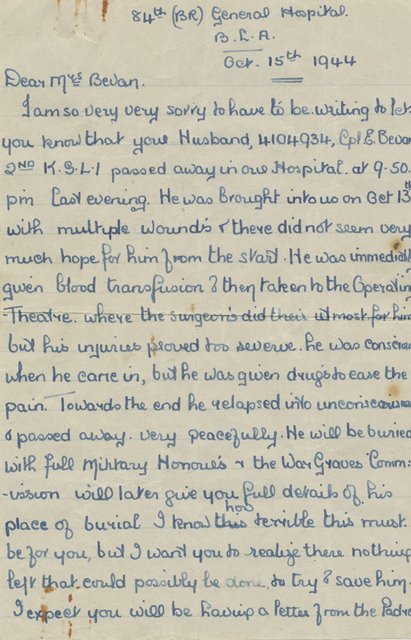 84th (BR) General Hospital.
B.L.A.
Oct. 15th 1944
Dear Mrs Bevan.
I am so very very sorry to have to be writing to let
you know that your Husband, 4104934, Cpl E. Bevan
2ND K.S.L.I passed away in our Hospital. at 9.50.
pm last evening. He was brought into us on Oct 13th
with multiple wounds & there did not seem very
much hope for him from the start. He was immediatl
given blood transfusion & then taken to the Operatin
-Theatre. where the surgeons did their utmost for him
but his injuries proved too severe. he was conscious
when he came in, but he was given drugs to ease the
pain. Towards the end he relapsed into unconsciousness
& passed away. very peacefully. He will be buried
with full Military Honours & the War Graves Comm-
-ission will later give you full details of his
place of burial I know how terrible this must
be for you, but I want you to realize there nothing
left that could possibly be done. to try & save him.
I expect you will be having a letter from the Padre